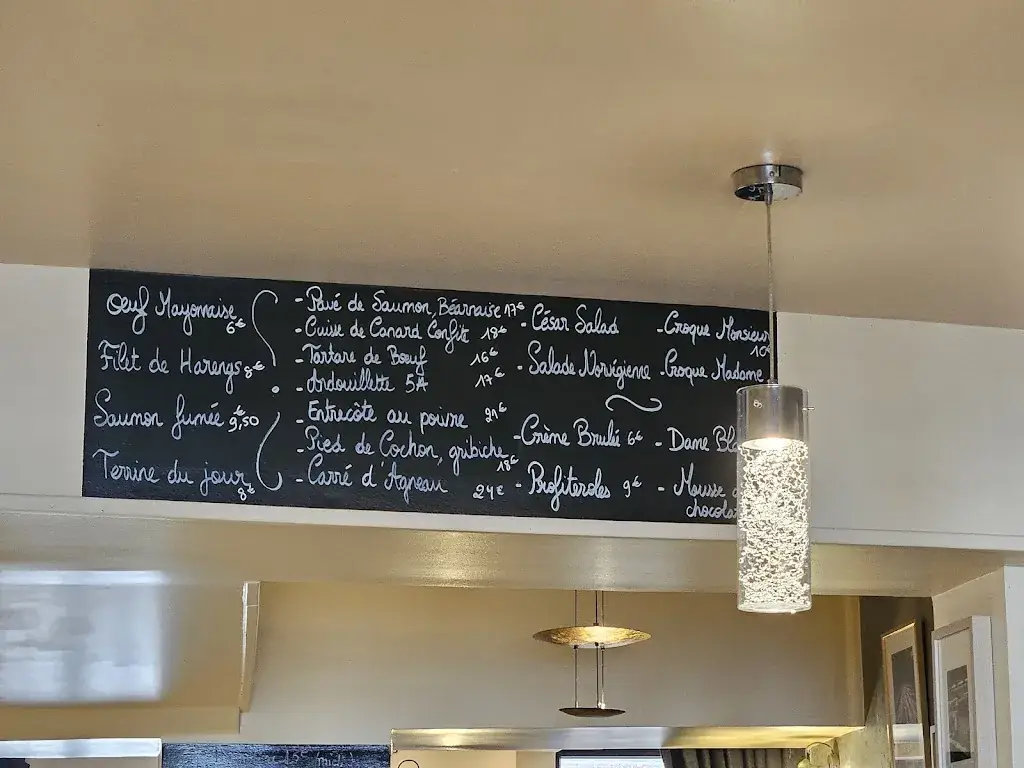 Oeuf Mayonnaise
6€
Filet de Harengs 8€
Saumon fumée 9,50€
Terrine du jour
8€
- Pavé de Saumon, Béarnaise 17€
- Cuisse de Canard Confite 18€
- Tartare de Bœuf 16€
- Andouillette 5A 17€
- Entrecôte au poivre 21€
- Pied de Cochon, gribiche
18€
- Carré d'Agneau 24€
- César Salad
- Salade Norvégienne
- Crème Brulée 6€
- Profiteroles 9€
- Croque Monsieur
10€
- Croque Madame
- Dame
- Mousse